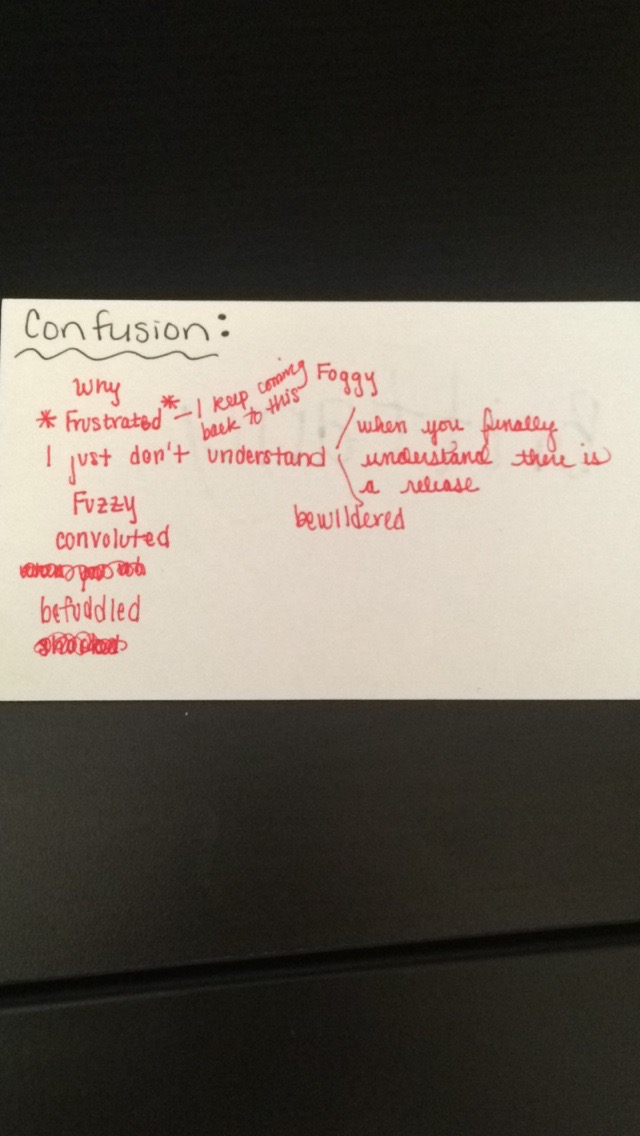 Confusion:
Why
* Frustrated * – I keep coming
back to this
Foggy
I just don't understand
when you finally
understand there is
a release
Fuzzy
convoluted
bewildered
befuddled